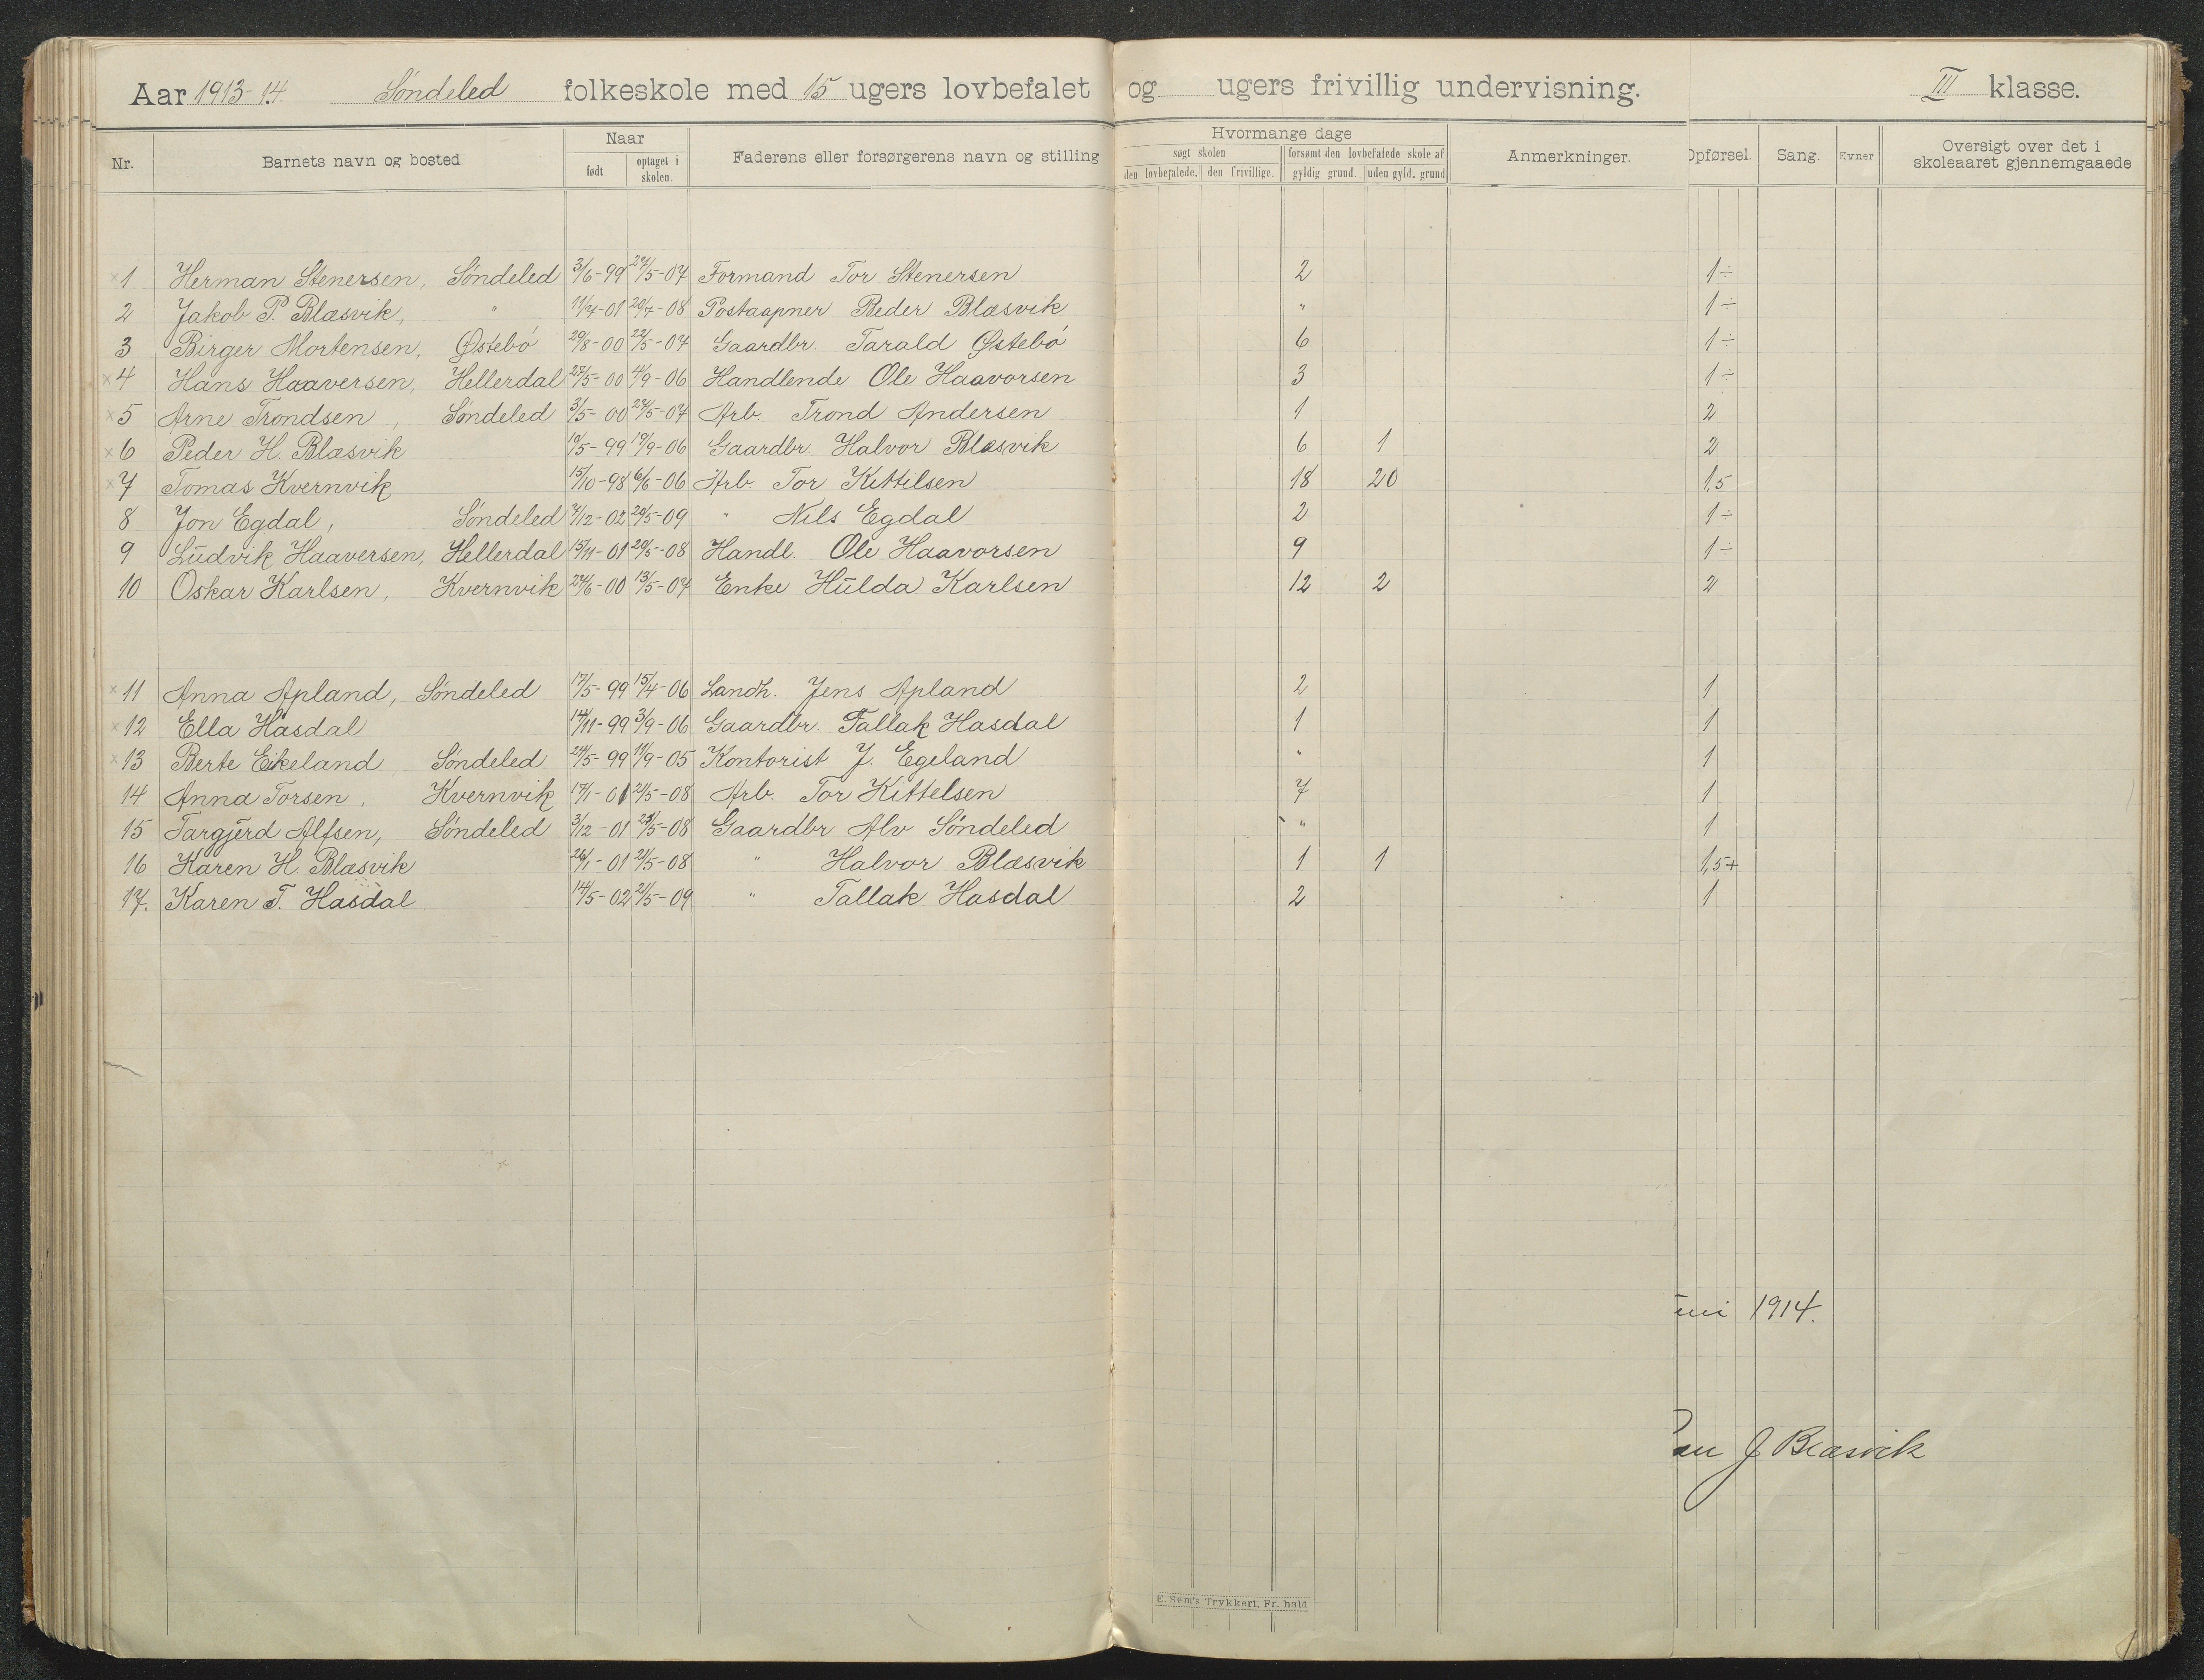 Aar 1913-14. Søndeled folkeskole med 15 ugers lovbefalet og ugers frivillig undervisning. III klasse.
Nr. Barnets navn og bosted Naar født optaget i skolen. Faderens eller forsørgerens navn og stilling Hvormange dage søgt skolen den lovbefalede. den frivillige. forsømt den lovbefalede skole af gyldig grund. uden gyld. grund Anmerkninger. Opførsel. Sang. Evner Oversigt over det i skoleaaret gjennemgaaede
×1 Herman Stenersen, Søndeled 3/6-99 /5-07 Formand Tor Stenersen 2 1÷
2 Jakob P. Blæsvik, " 11/4-01 20/7-08 Postaapner Peder Blæsvik " 1÷
3 Birger Mortensen, Østebø 29/8-00 22/5-07 Gaardbr. Tarald Østebø 6 1÷
×4 Hans Haaversen, Hellerdal 27/5-00 4/9-06 Handlende Ole Haavorsen 3 1÷
×5 Arne Trondsen, Søndeled 3/5-00 /5-07 Arb. Trond Andersen 1 2
×6 Peder H. Blæsvik 10/5-99 19/9-06 Gaardbr. Halvor Blæsvik 6 1 2
×7 Tomas Kvernvik 15/10-98 6/6-06 Arb. Tor Kittilsen 18 20 1,5
8 Jon Egdal, Søndeled 7/12-02 20/5-09 " Nils Egdal 2 1÷
9 Ludvik Haaversen, Hellerdal 15/11-01 20/5-08 Handl. Ole Haavorsen 9 1÷
10 Oskar Karlsen, Kvernvik 24/6-00 13/5-07 Enke Hulda Karlsen 12 2 2
×11 Anna Apland, Søndeled 17/5-99 15/4-06 Landh. Jens Apland 2 1
×12 Ella Hasdal 14/11-99 3/9-06 Gaardbr. Tallak Hasdal 1 1
×13 Berte Eikeland Søndeled 24/5-99 11/9-05 Kontorist J. Egeland " 1
14 Anna Torsen, Kvernvik 17/1-01 21/5-08 Arb. Tor Kittelsen 7 1
15 Targjerd Alfsen, Søndeled 3/12-01 23/5-08 Gaardbr Alv Søndeled " 1
16 Karen H. Blæsvik 26/1-01 21/5-08 " Halvor Blæsvik 1 1 1,5+
17. Karen T. Hasdal 14/5-02 21/5-09 " Tallak Hasdal 2 1
uni 1914.
J Blæsvik
E. Sem's Trykkeri, Fr. hald